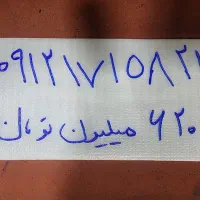 ۰۹۱۲۱۷۱۵۸۲۱
۶۲۰ میلیون تومان